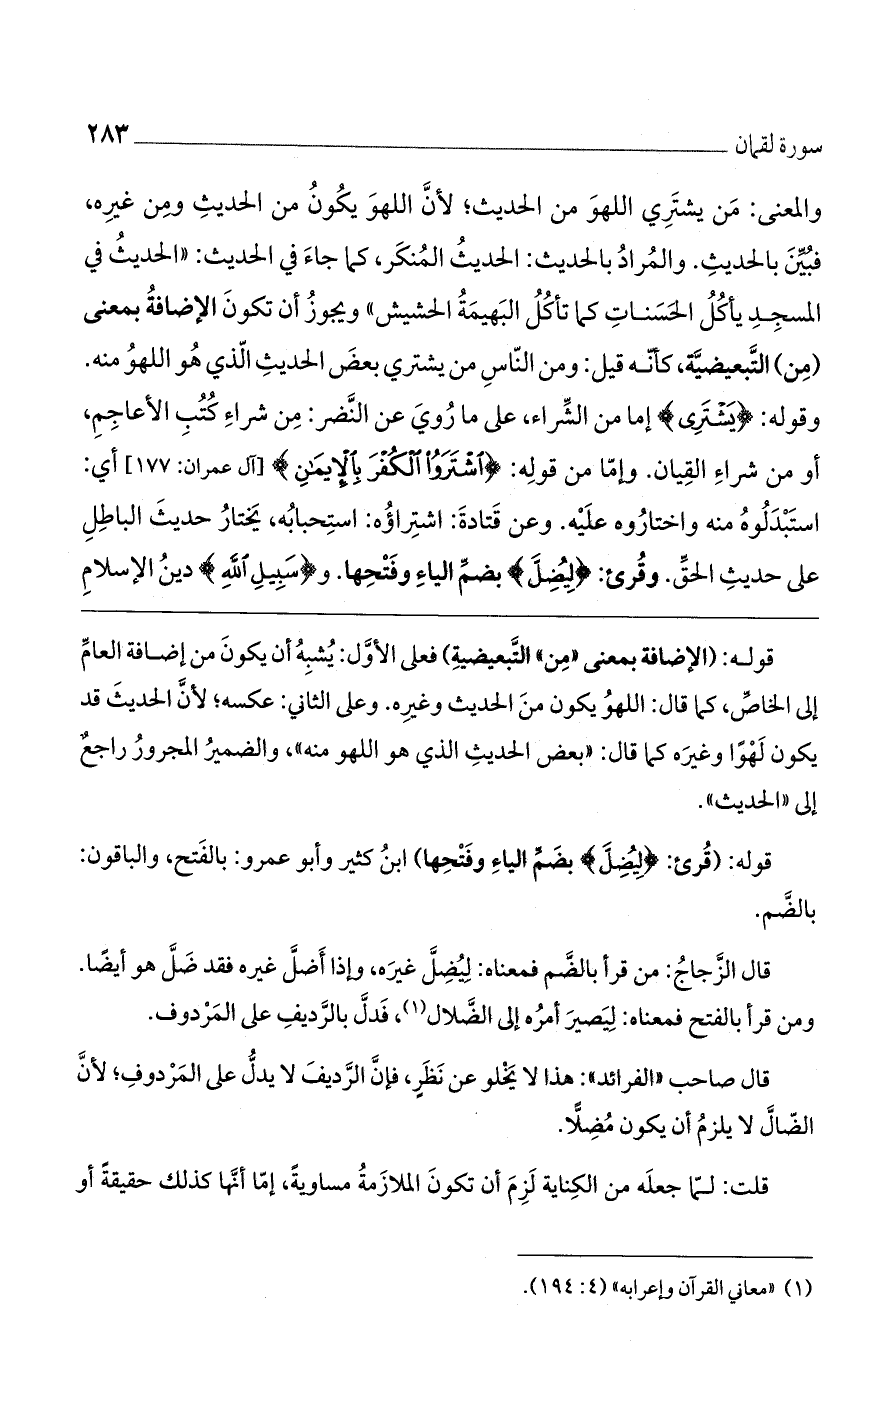 سورة لقمان ٢٨٣
والمعنى: مَن يشتَرِي اللهوَ من الحديث؛ لأنَّ اللهوَ يكُونُ من الحديثِ ومِن غيرِه،
فبُيِّنَ بالحديثِ. والمُرادُ بالحديث: الحديثُ المُنكَر، كما جاءَ في الحديث: «الحديثُ في
المسجِدِ يأكُلُ الحَسَناتِ كما تأكُلُ البَهيمَةُ الحشيش» ويجوزُ أن تكونَ الإضافةُ بمعنى
(مِن) التَّبعيضيَّة، كأنّه قيل: ومن النّاسِ من يشتري بعضَ الحديثِ الّذي هُو اللهوُ منه.
وقوله: ﴿يَشْتَرِى﴾ إما من الشِّراء، على ما رُويَ عن النَّضر: مِن شراءِ كُتُبِ الأعاجِم،
أو من شراءِ القِيان. وإمّا من قولِه: ﴿ٱشْتَرَوُا۟ ٱلْكُفْرَ بِٱلْإِيمَـٰنِ﴾ [آل عمران: ١٧٧] أي:
استَبْدَلُوهُ منه واختارُوه علَيْه. وعن قَتادةَ: اشتِراؤُه: استِحبابُه، يَختارُ حديثَ الباطِلِ
على حديثِ الحقِّ. وقُرئ: ﴿لِيُضِلَّ﴾ بضمِّ الياءِ وفَتْحِها. و﴿سَبِيلِ ٱللَّهِ﴾ دينُ الإسلامِ
قوله: (الإضافة بمعنى «مِن» التَّبعيضيةِ) فعلى الأوَّل: يُشبِهُ أن يكونَ من إضافة العامِّ
إلى الخاصِّ، كما قال: اللهوُ يكون منَ الحديث وغيرِه. وعلى الثاني: عكسه؛ لأنَّ الحديثَ قد
يكون لَهْوًا وغيرَه كما قال: «بعض الحديثِ الذي هو اللهو منه»، والضميرُ المجرورُ راجعٌ
إلى «الحديث».
قوله: (قُرئ: ﴿لِيُضِلَّ﴾ بضَمِّ الياءِ وفَتْحِها) ابنُ كثير وأبو عمرو: بالفَتح، والباقون:
بالضَّم.
قال الزَّجاجُ: من قرأ بالضَّم فمعناه: لِيُضِلَّ غيرَه، وإذا أَضلَّ غيره فقد ضَلَّ هو أيضًا.
ومن قرأ بالفتح فمعناه: لِيَصيرَ أمرُه إلى الضَّلال(١)، فَدلَّ بالرَّديفِ على المَرْدوف.
قال صاحب «الفرائد»: هذا لا يَخْلو عن نَظَرٍ، فإنَّ الرَّديفَ لا يدلُّ على المَرْدوفِ؛ لأنَّ
الضّالَّ لا يلزمُ أن يكون مُضِلًّا.
قلت: لـمّا جعلَه من الكِناية لَزِمَ أن تكونَ الملازَمةُ مساويةً، إمّا أنَّها كذلك حقيقةً أو
(١) «معاني القرآن وإعرابه» (٤: ١٩٤).